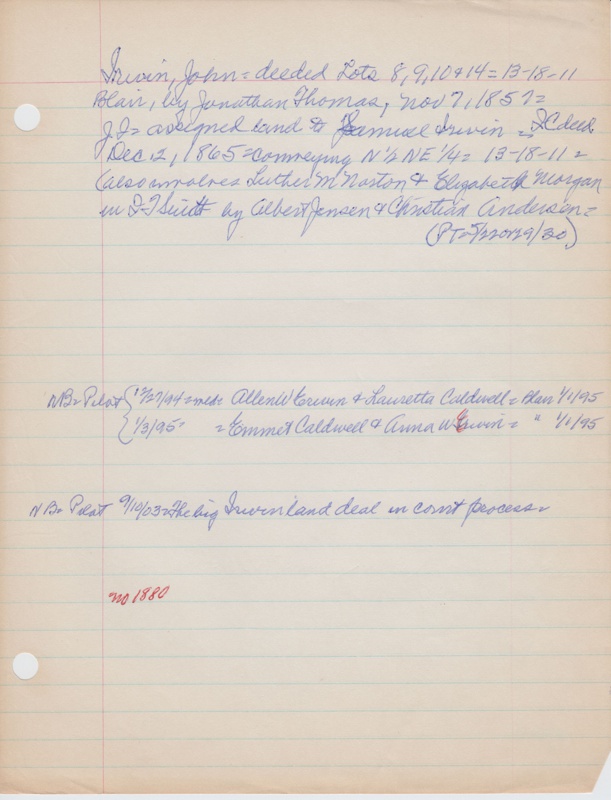 Irwin, John = deeded Lots 8, 9, 10 & 14 = 13-18-11
Blair, by Jonathan Thomas, Nov 7, 1857 =
J I = assigned land to Samuel Irwin = QC deed
Dec. 2, 1865 = conveying N ½ NE ¼ = 13-18-11 =
(also involves Luther M Norton & Elizabeth Morgan
in by Albert Jensen & Christian Anderson =
29/30)
NB = Pilot { 12/27/94 = med = Allen W Erwin & Lauretta Caldwell = Blair 1/1/95
1/3/95 = = Emmet Caldwell & Anna W Erwin = " 1/1/95
NB = Pilot 9/10/03 = The big Irwin land deal in court process =
no 1880